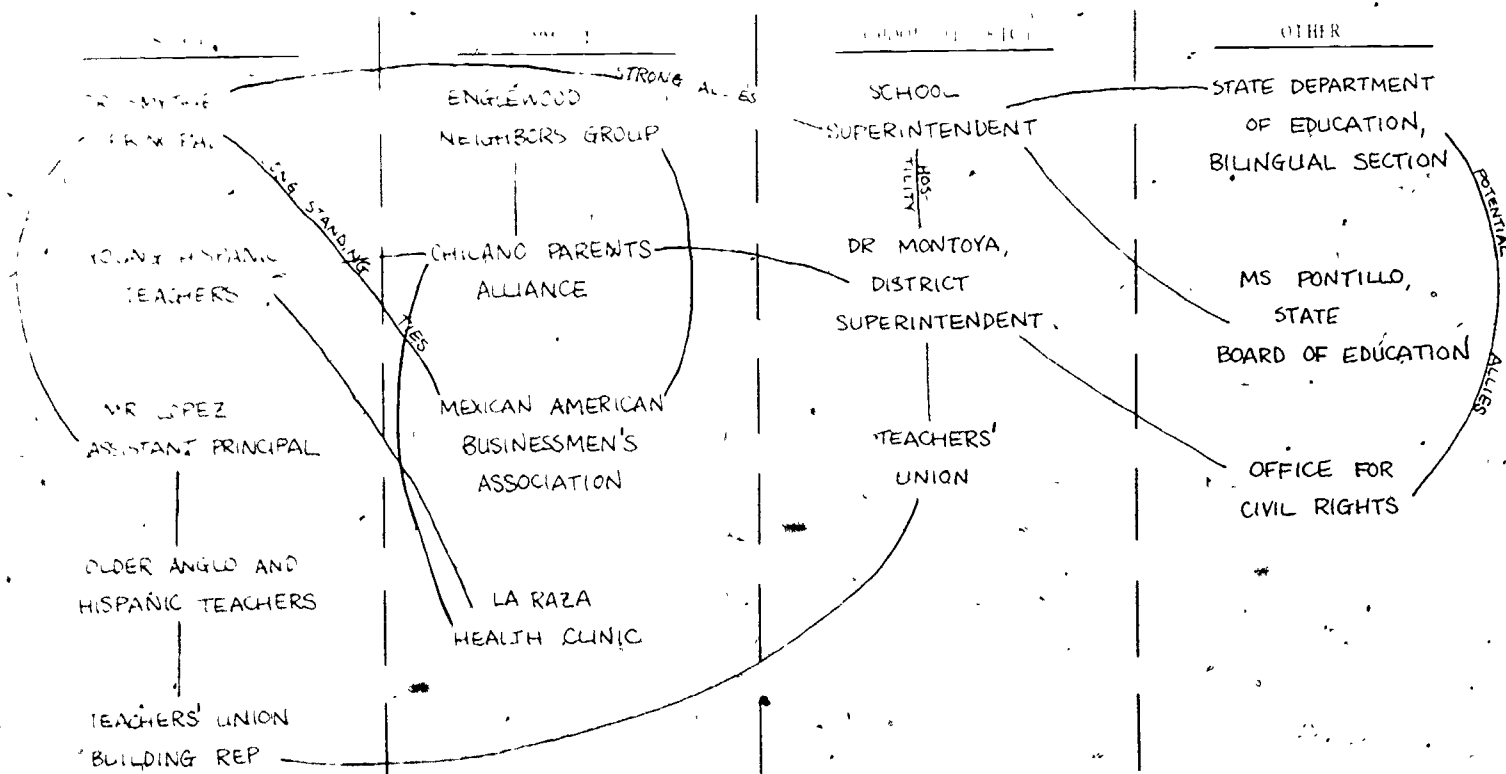 OTHER
PRINCIPAL
YOUNG HISPANIC
TEACHERS
MR LOPEZ
ASSISTANT PRINCIPAL
OLDER ANGLO AND
HISPANIC TEACHERS
TEACHERS' UNION
BUILDING REP
LONG STANDING TIES
STRONG ALLIES
ENGLEWOOD
NEIGHBORS GROUP
CHICANO PARENTS
ALLIANCE
MEXICAN AMERICAN
BUSINESSMEN'S
ASSOCIATION
LA RAZA
HEALTH CLINIC
SCHOOL
SUPERINTENDENT
HOS-
TILITY
DR MONTOYA,
DISTRICT
SUPERINTENDENT
TEACHERS'
UNION
STATE DEPARTMENT
OF EDUCATION,
BILINGUAL SECTION
MS PONTILLO,
STATE
BOARD OF EDUCATION
OFFICE FOR
CIVIL RIGHTS
POTENTIAL ALLIES